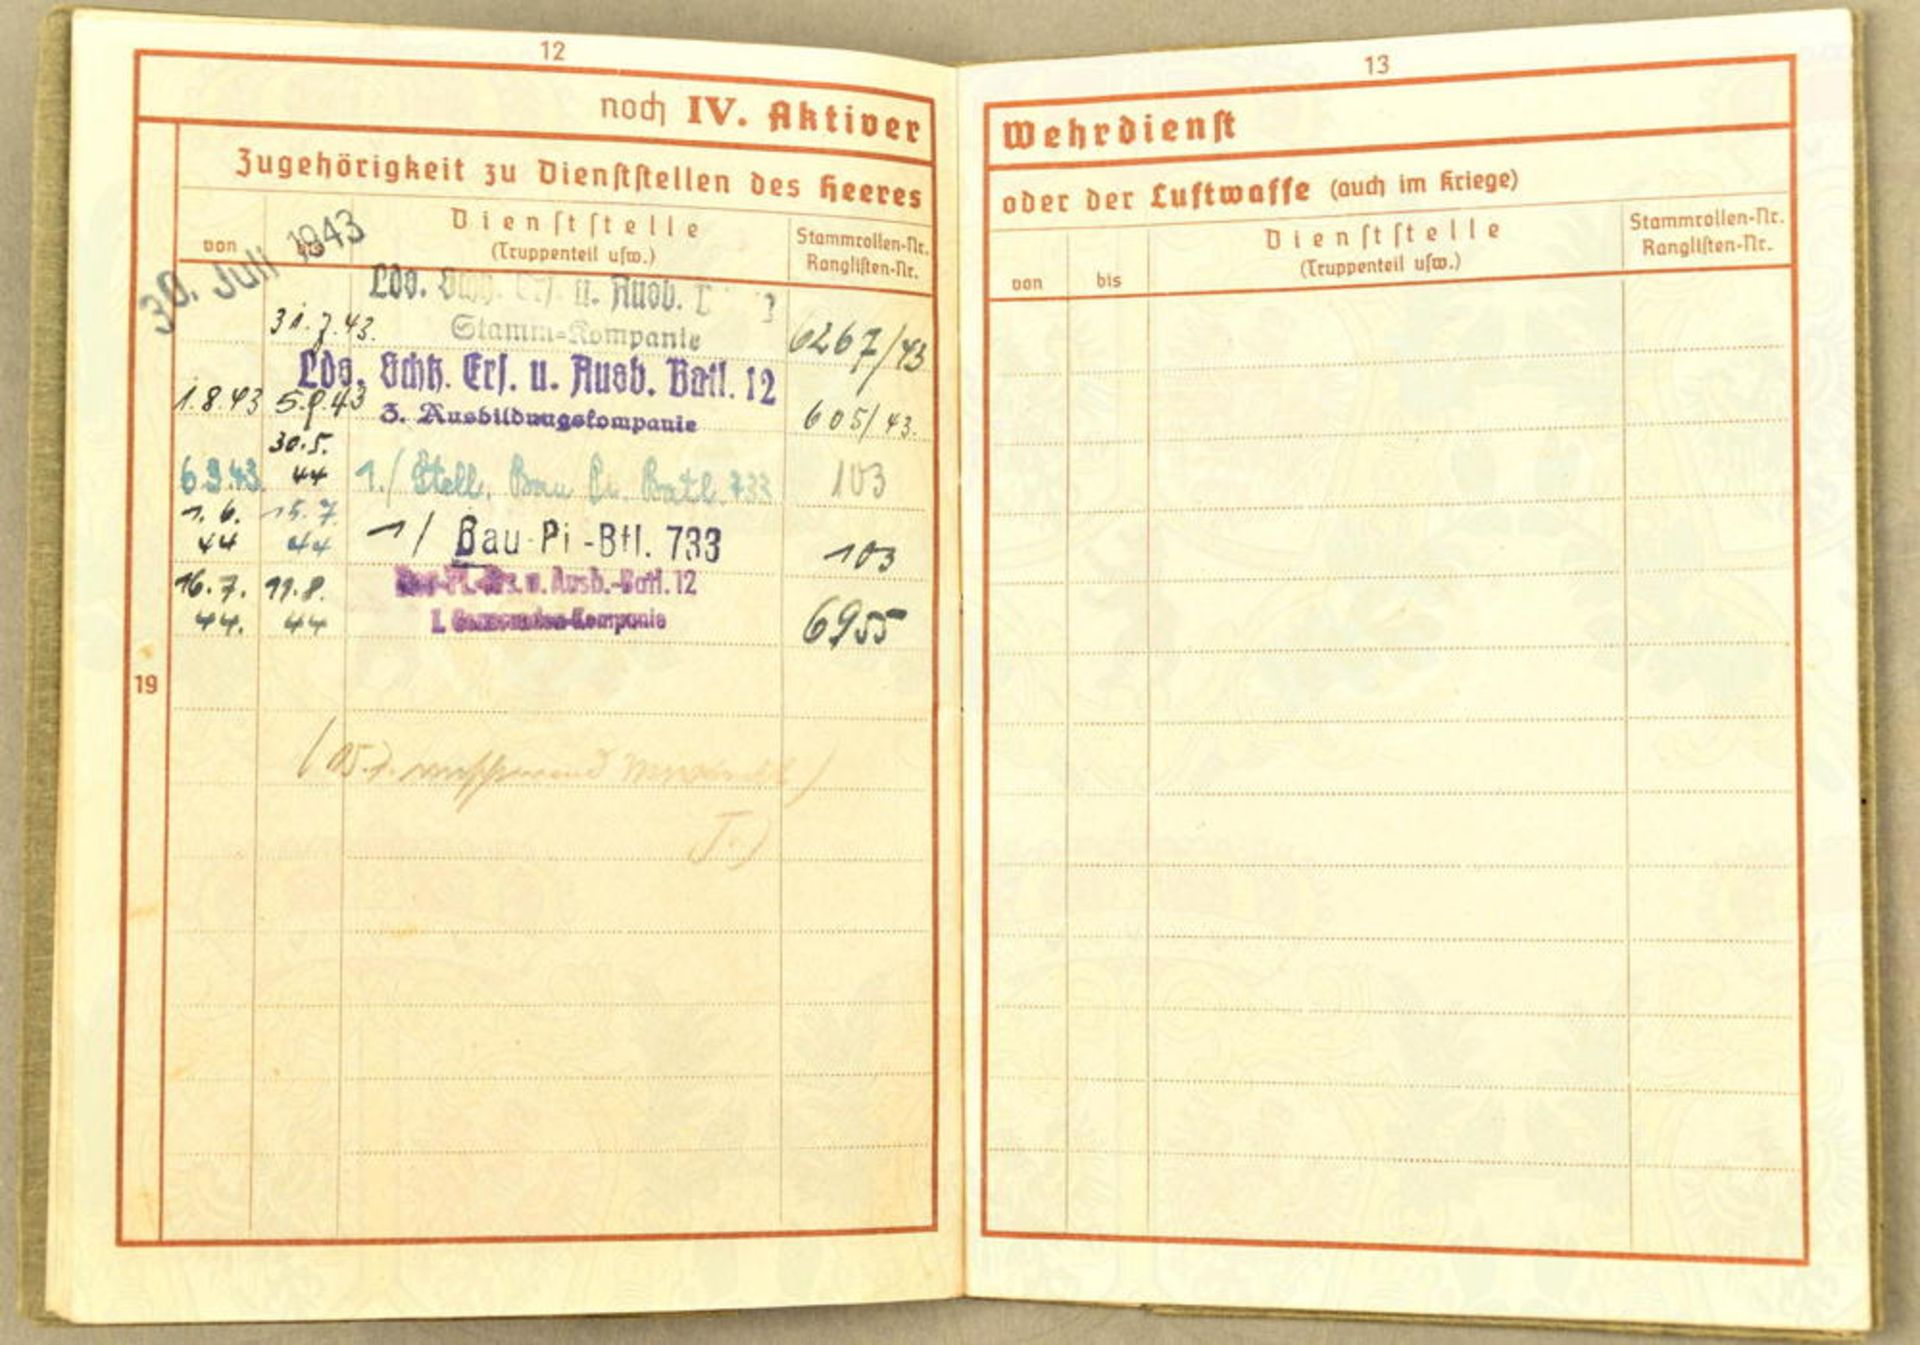 12
noch IV. Aktiver
Zugehörigkeit zu Dienststellen des Heeres
von
bis
Dienststelle
(Truppenteil usw.)
Stammrollen-Nr.
Ranglisten-Nr.
30. Juli 1943
31.7.43.
Lds. Schtz. Ers. u. Ausb.
Stamm-Kompanie
6267/43
1.8.43
5.9.43
Lds. Schtz. Ers. u. Ausb. Batl. 12
3. Ausbildungskompanie
605/43.
6.9.43.
30.5.
44
1./ Stell. Bau Pi. Batl. 733
103
1.6.
44
15.7.
44
1/ Bau-Pi-Btl. 733
103
16.7.
44.
11.8.
44
Bau-Pi.-Ers. u. Ausb.-Batl. 12
Genesenden-Kompanie
6955
19
13
Wehrdienst
oder der Luftwaffe (auch im Kriege)
von
bis
Dienststelle
(Truppenteil usw.)
Stammrollen-Nr.
Ranglisten-Nr.